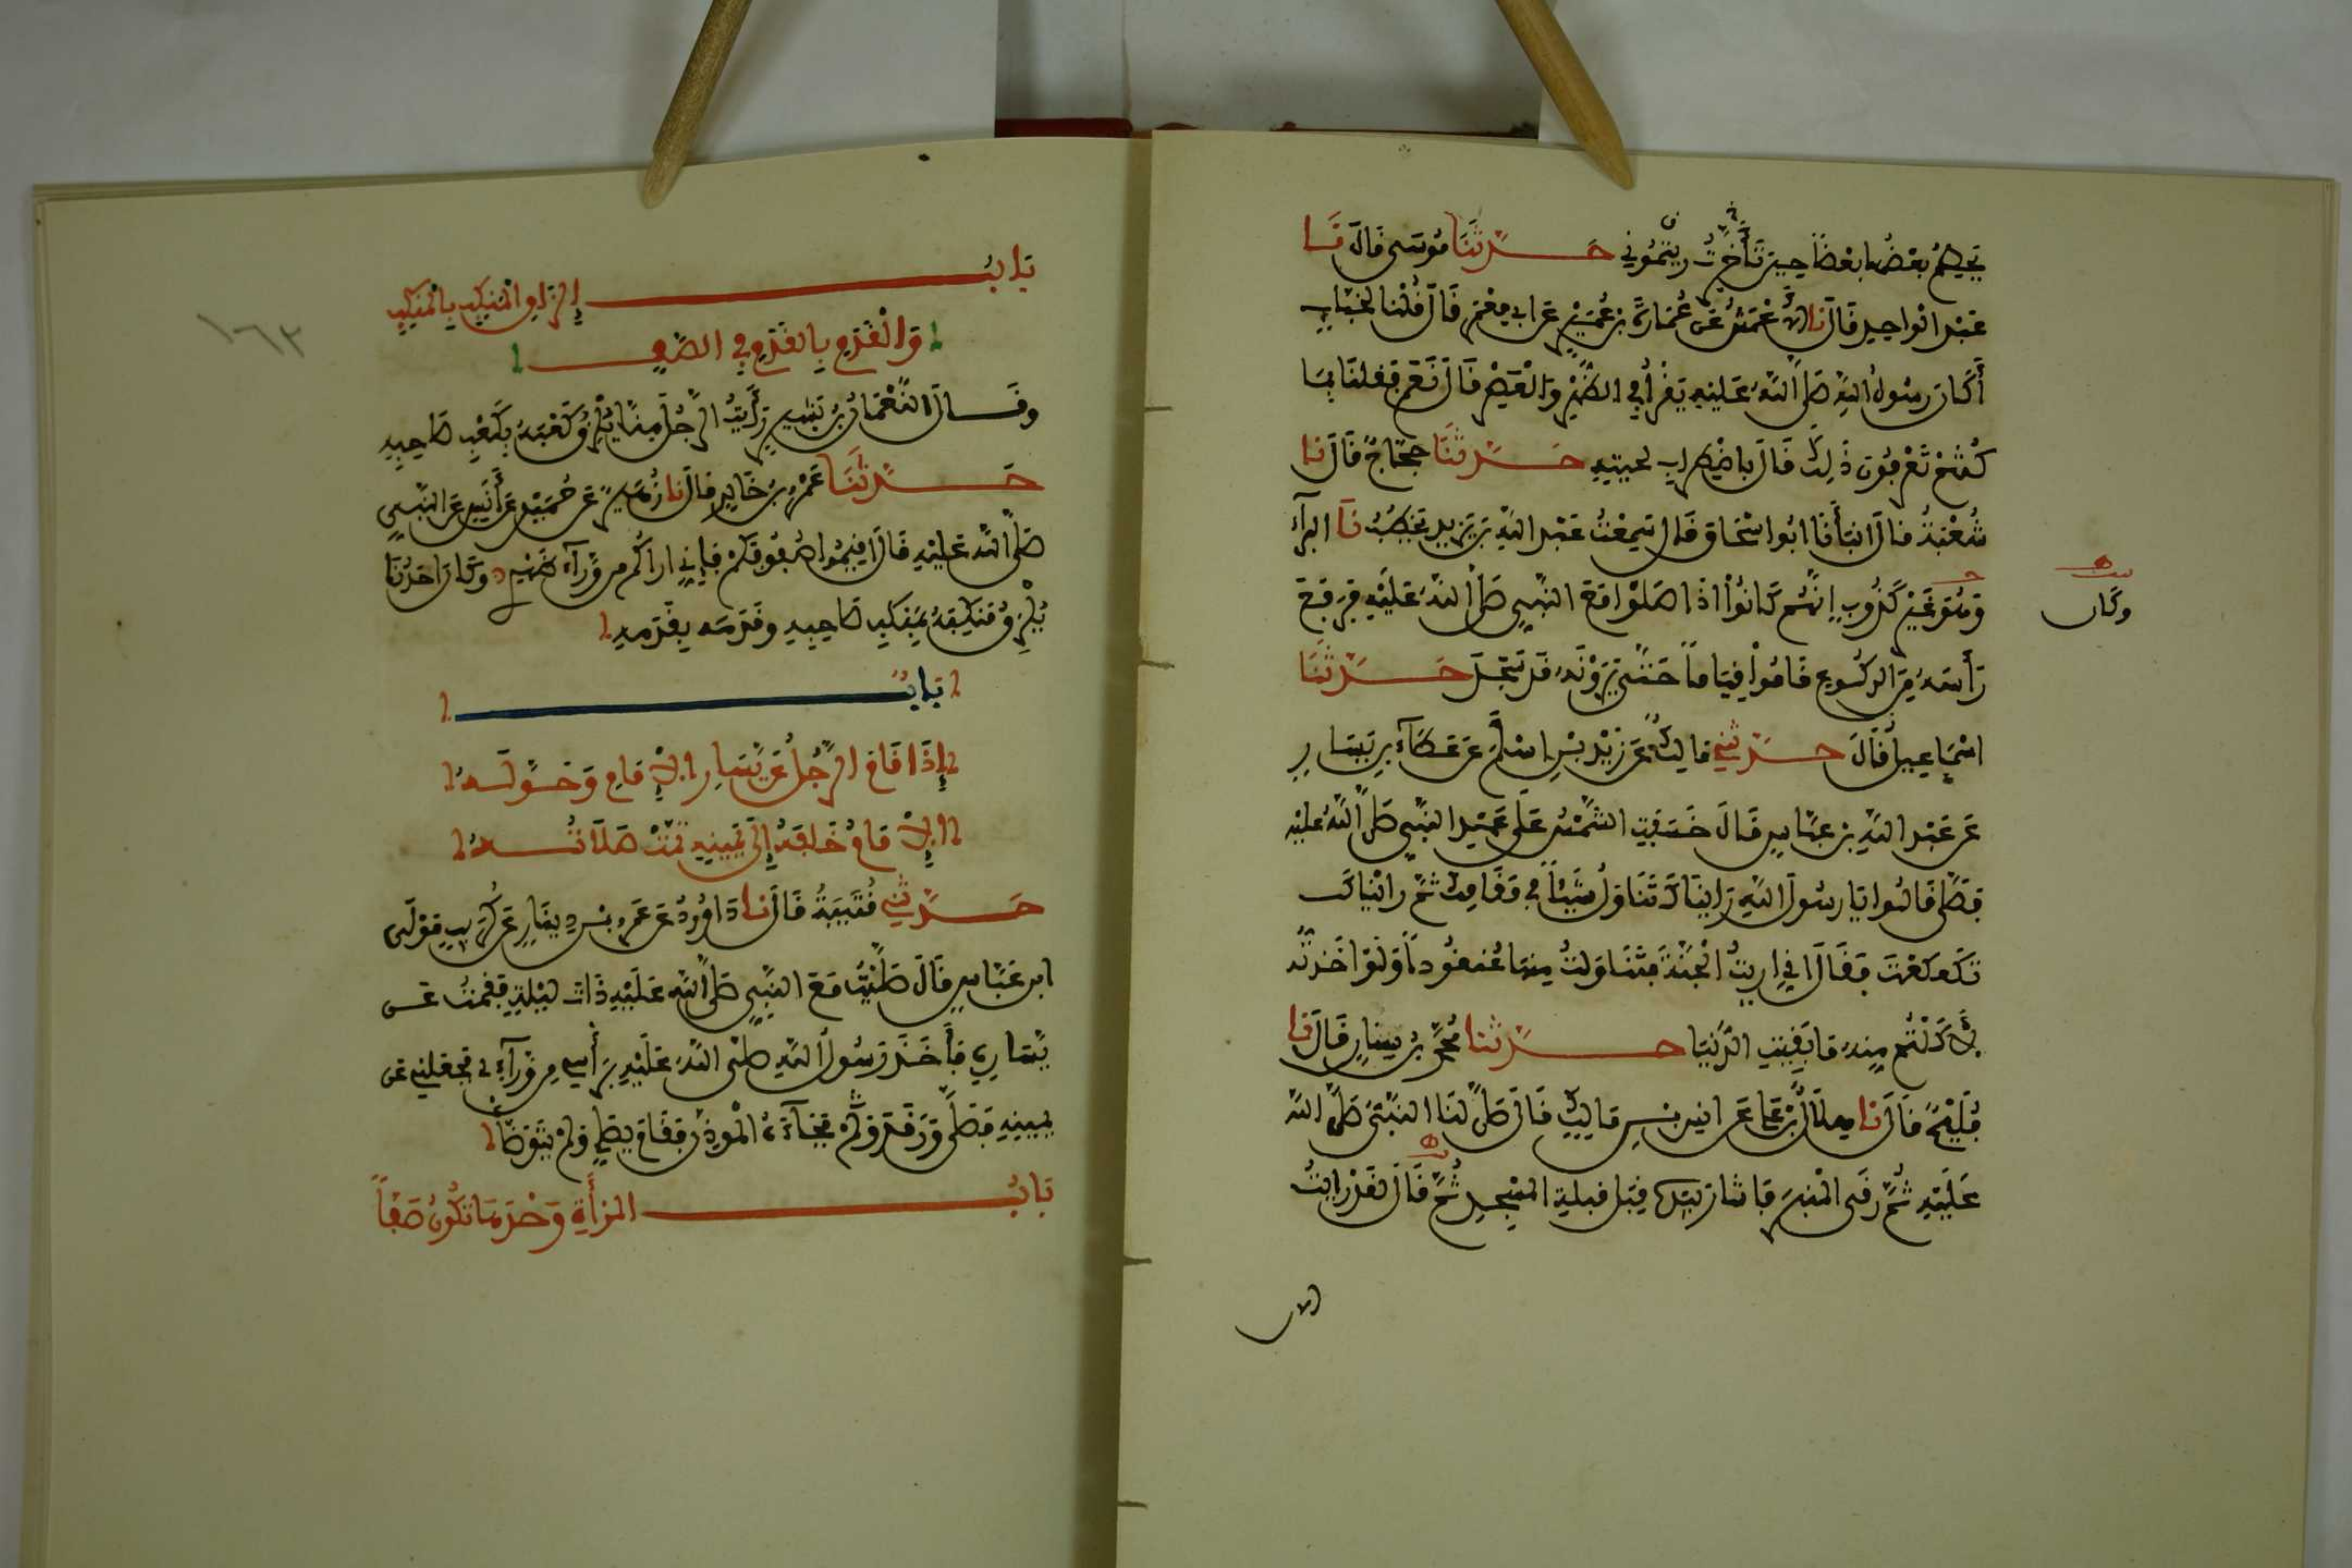 يحطم بعضها بعضا حين تأخرت رأيتموني حدثنا موسى قال نا
عبد الواحد قال نا الأعمش عن عمارة بن عمير عن ابي معمر قال قلنا لخباب
أكان رسول الله صلى الله عليه يقرأ في الظهر والعصر قال نعم فقلنا بما
كنتم تعرفون ذلك قال باضطراب لحيته حدثنا حجاج قال نا
شعبة قال انبأنا ابو اسحاق قال سمعت عبد الله بن يزيد يخطب نا البراء
وهو غير كذوب إنهم كانوا اذا صلوا مع النبي صلى الله عليه فرفع
وكان
رأسه من الركوع قاموا قياما حتى يرونه قد سجد حدثنا
اسماعيل قال حدثني مالك عن زيد بن اسلم عن عطاء بن يسار
عن عبد الله بن عباس قال خسفت الشمس على عهد النبي صلى الله عليه
فصلى قالوا يا رسول الله رايناك تناول شيئا في مقامك ثم رايناك
تكعكعت فقال اني اريت الجنة فتناولت منها عنقودا ولو اخذته
لأكلتم منه ما بقيت الدنيا حدثنا محمد بن سنان قال نا
فليح قال نا هلال بن علي عن انس بن مالك قال صلى لنا النبي صلى الله
عليه ثم رقى المنبر فاشار بيده قبل قبلة المسجد ثم قال لقد رايت
الان
باب إلزاق المنكب بالمنكب
والقدم بالقدم في الصف
وقال النعمان بن بشير رأيت الرجل منا يلزق كعبه بكعب صاحبه
حدثنا عمرو بن خالد قال نا زهير عن حميد عن أنس عن النبي
صلى الله عليه قال اقيموا صفوفكم فإني اراكم من وراء ظهري وكان احدنا
يلزق منكبه بمنكب صاحبه وقدمه بقدمه
باب
إذا قام الرجل عن يسار الإمام وحوله
الإمام خلفه إلى يمينه تمت صلاته
حدثني قتيبة قال نا داوود عن عمرو بن دينار عن كريب مولى
ابن عباس قال صليت مع النبي صلى الله عليه ذات ليلة فقمت عن
يساره فأخذ رسول الله صلى الله عليه برأسي من وراءي فجعلني عن
يمينه فصلى ورقد فجاءه الموذن فقام يصلي ولم يتوضأ
باب المرأة وحدها تكون صفا
١٦٣